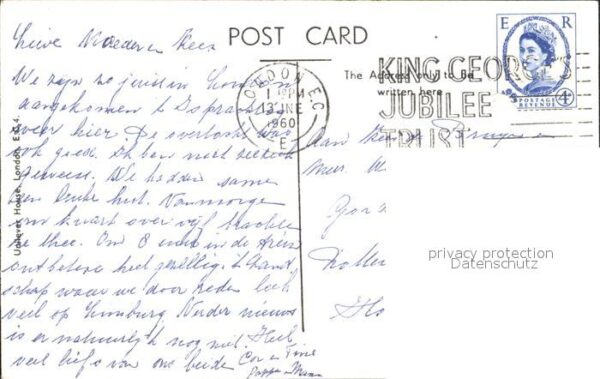 POST CARD
E R
POSTAGE REVENUE
4D
The Address only to be
written here
LONDON E.C.
1 PM
13 JNE
1960
E
KING GEORGE'S
JUBILEE
TRUST
Lieve Moeder en Kees
We zijn zo juist in Londen
aangekomen 't Is prachtig
weer hier De overtocht was
ook goed. Ik ben niet zeeziek
geweest. We hadden samen
een leuke hut. Vanmorgen
om kwart over vijf brachten
ze thee. Om 8 uur in de trein
ontbeten heel gezellig. 't Land
schap waar we door reden leek
veel op Limburg Verder nieuws
is er natuurlijk nog niet. Heel
veel liefs van ons beide Cor en
Pappa Mama
Aan
Mevr.
Rotter
Ho
Unilever House, London, E.C.4.
privacy protection
Datenschutz